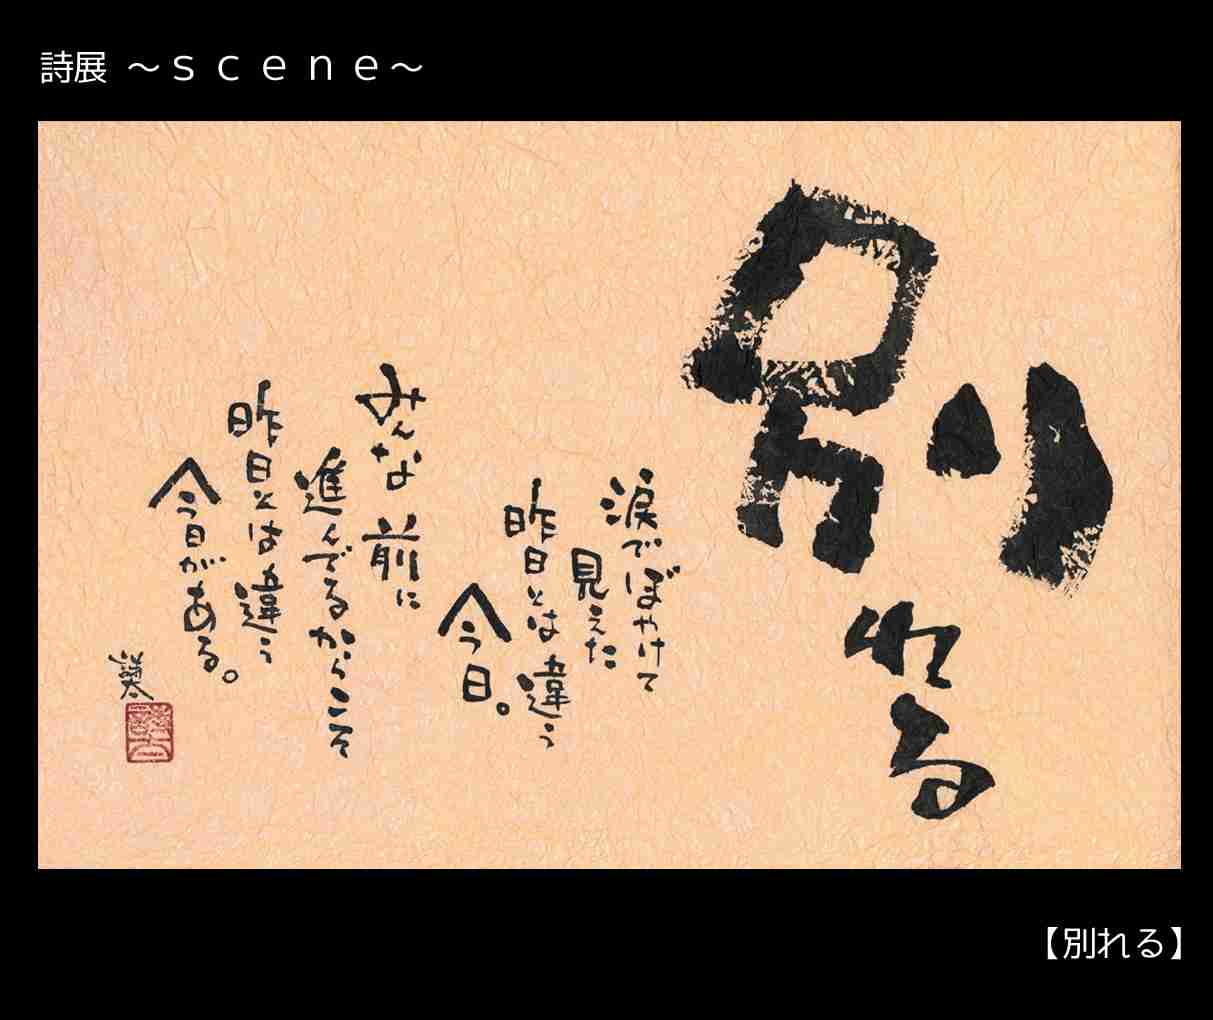 詩展 ～ｓｃｅｎｅ～
別れる
涙でぼやけて
見えた
昨日とは違う
今日。
みんな前に
進んでるからこそ
昨日とは違う
今日がある。
【別れる】